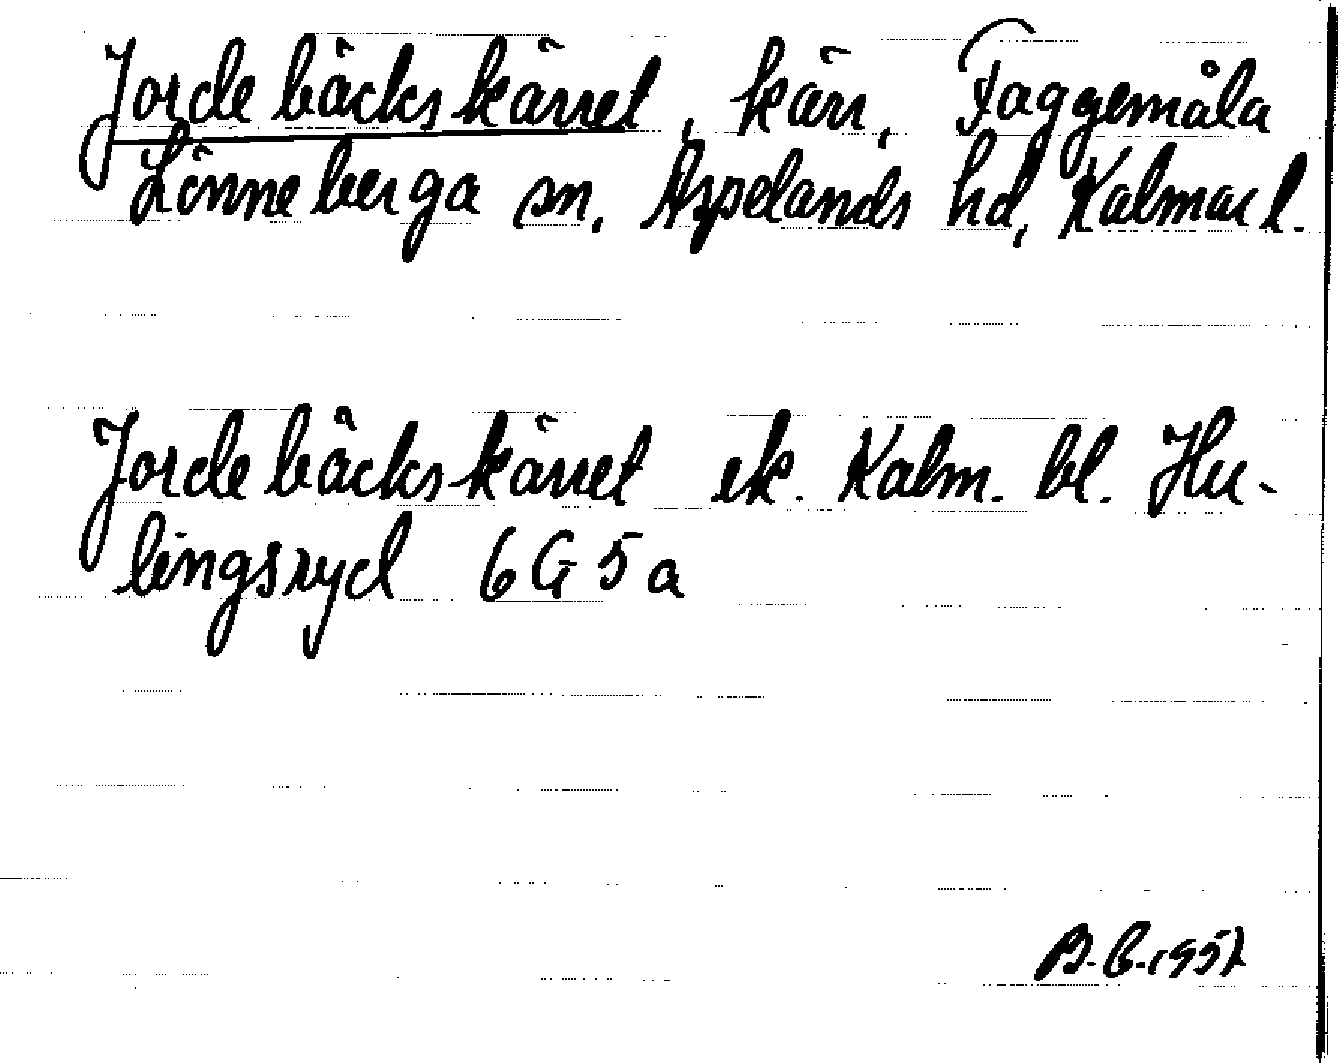 Jordebäckskärret, kärr, Faggemåla
Lönneberga sn, Aspelands hd, Kalmar l.
Jordebäckskärret ek. Kalm. bl. Hu-
lingsryd 6G5a
B.B. 1957